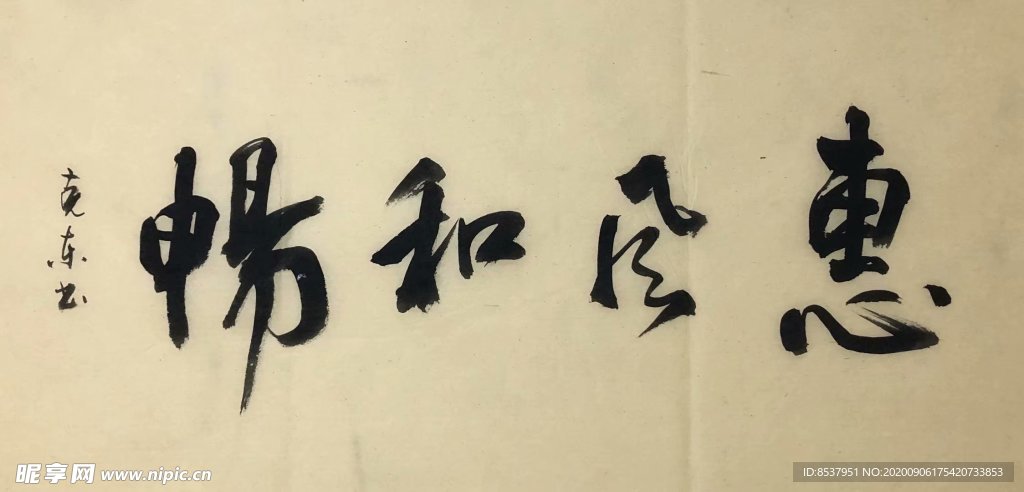 惠风和暢
克东书
昵享网 www.nipic.cn
ID:8537951 NO:20200906175420733853